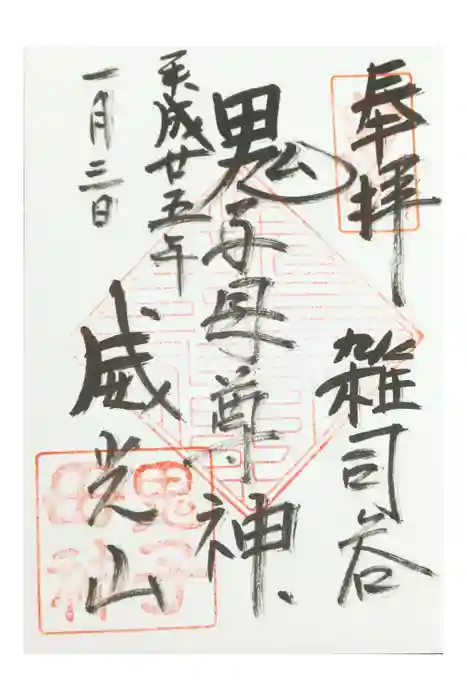 奉拝
雑司谷
鬼子母尊神
平成廿五年
一月三日
威光山